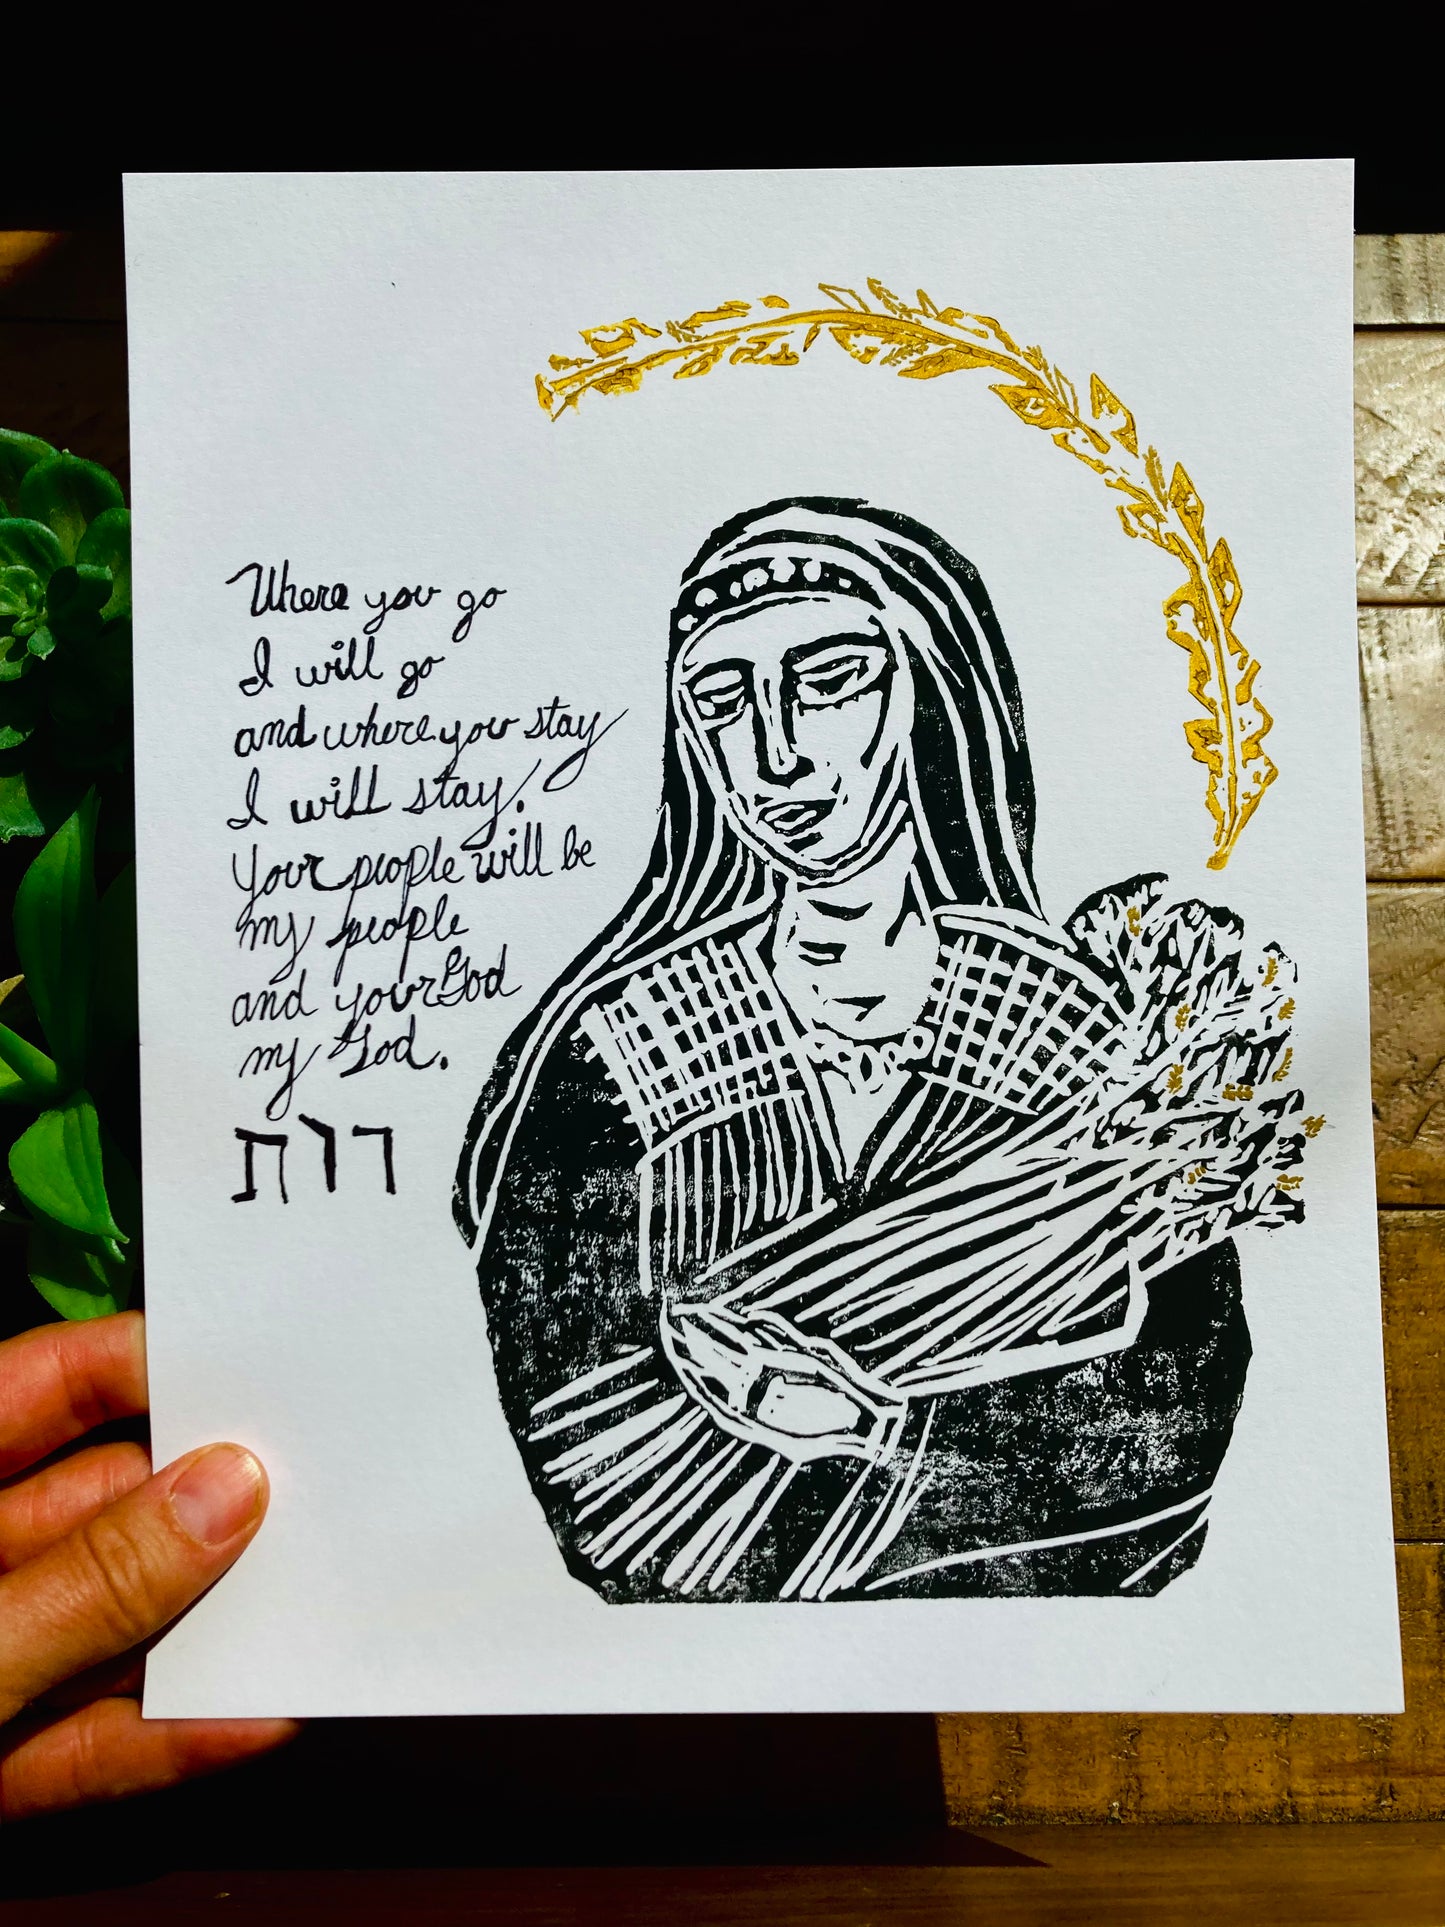 Where you go
I will go
and where you stay
I will stay.
Your people will be
my people
and your God
my God.
רות